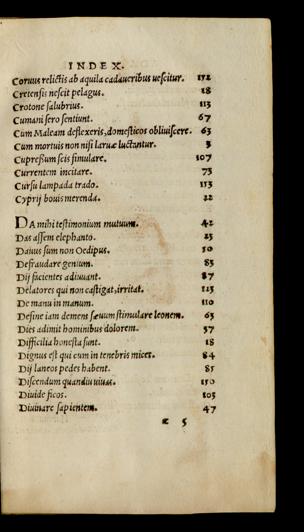 INDEX.
Coruus relictis ab aquila cadaueribus uescitur. 172
Cretensis nescit pelagus. 18
Crotone salubrius. 113
Cumani sero sentiunt. 67
Cum Maleam deflexeris, domesticos obliuiscere. 63
Cum mortuis non nisi laruæ luctantur. 3
Cupressum scis simulare. 107
Currentem incitare. 73
Cursu lampada trado. 113
Cyprij bouis merenda. 22
DA mihi testimonium mutuum. 42
Das assem elephanto. 23
Dauus sum non Oedipus. 50
Defraudare genium. 83
Dij facientes adiuuant. 87
Delatores qui non castigat, irritat. 123
De manu in manum. 110
Desine iam demens sæuum stimulare leonem. 63
Dies adimit hominibus dolorem. 57
Difficilia honesta sunt. 18
Dignus est qui cum in tenebris mices. 84
Dij laneos pedes habent. 85
Discendum quandiu uiuas. 150
Diuide ficos. 103
Diuinare sapientem. 47
æ 5